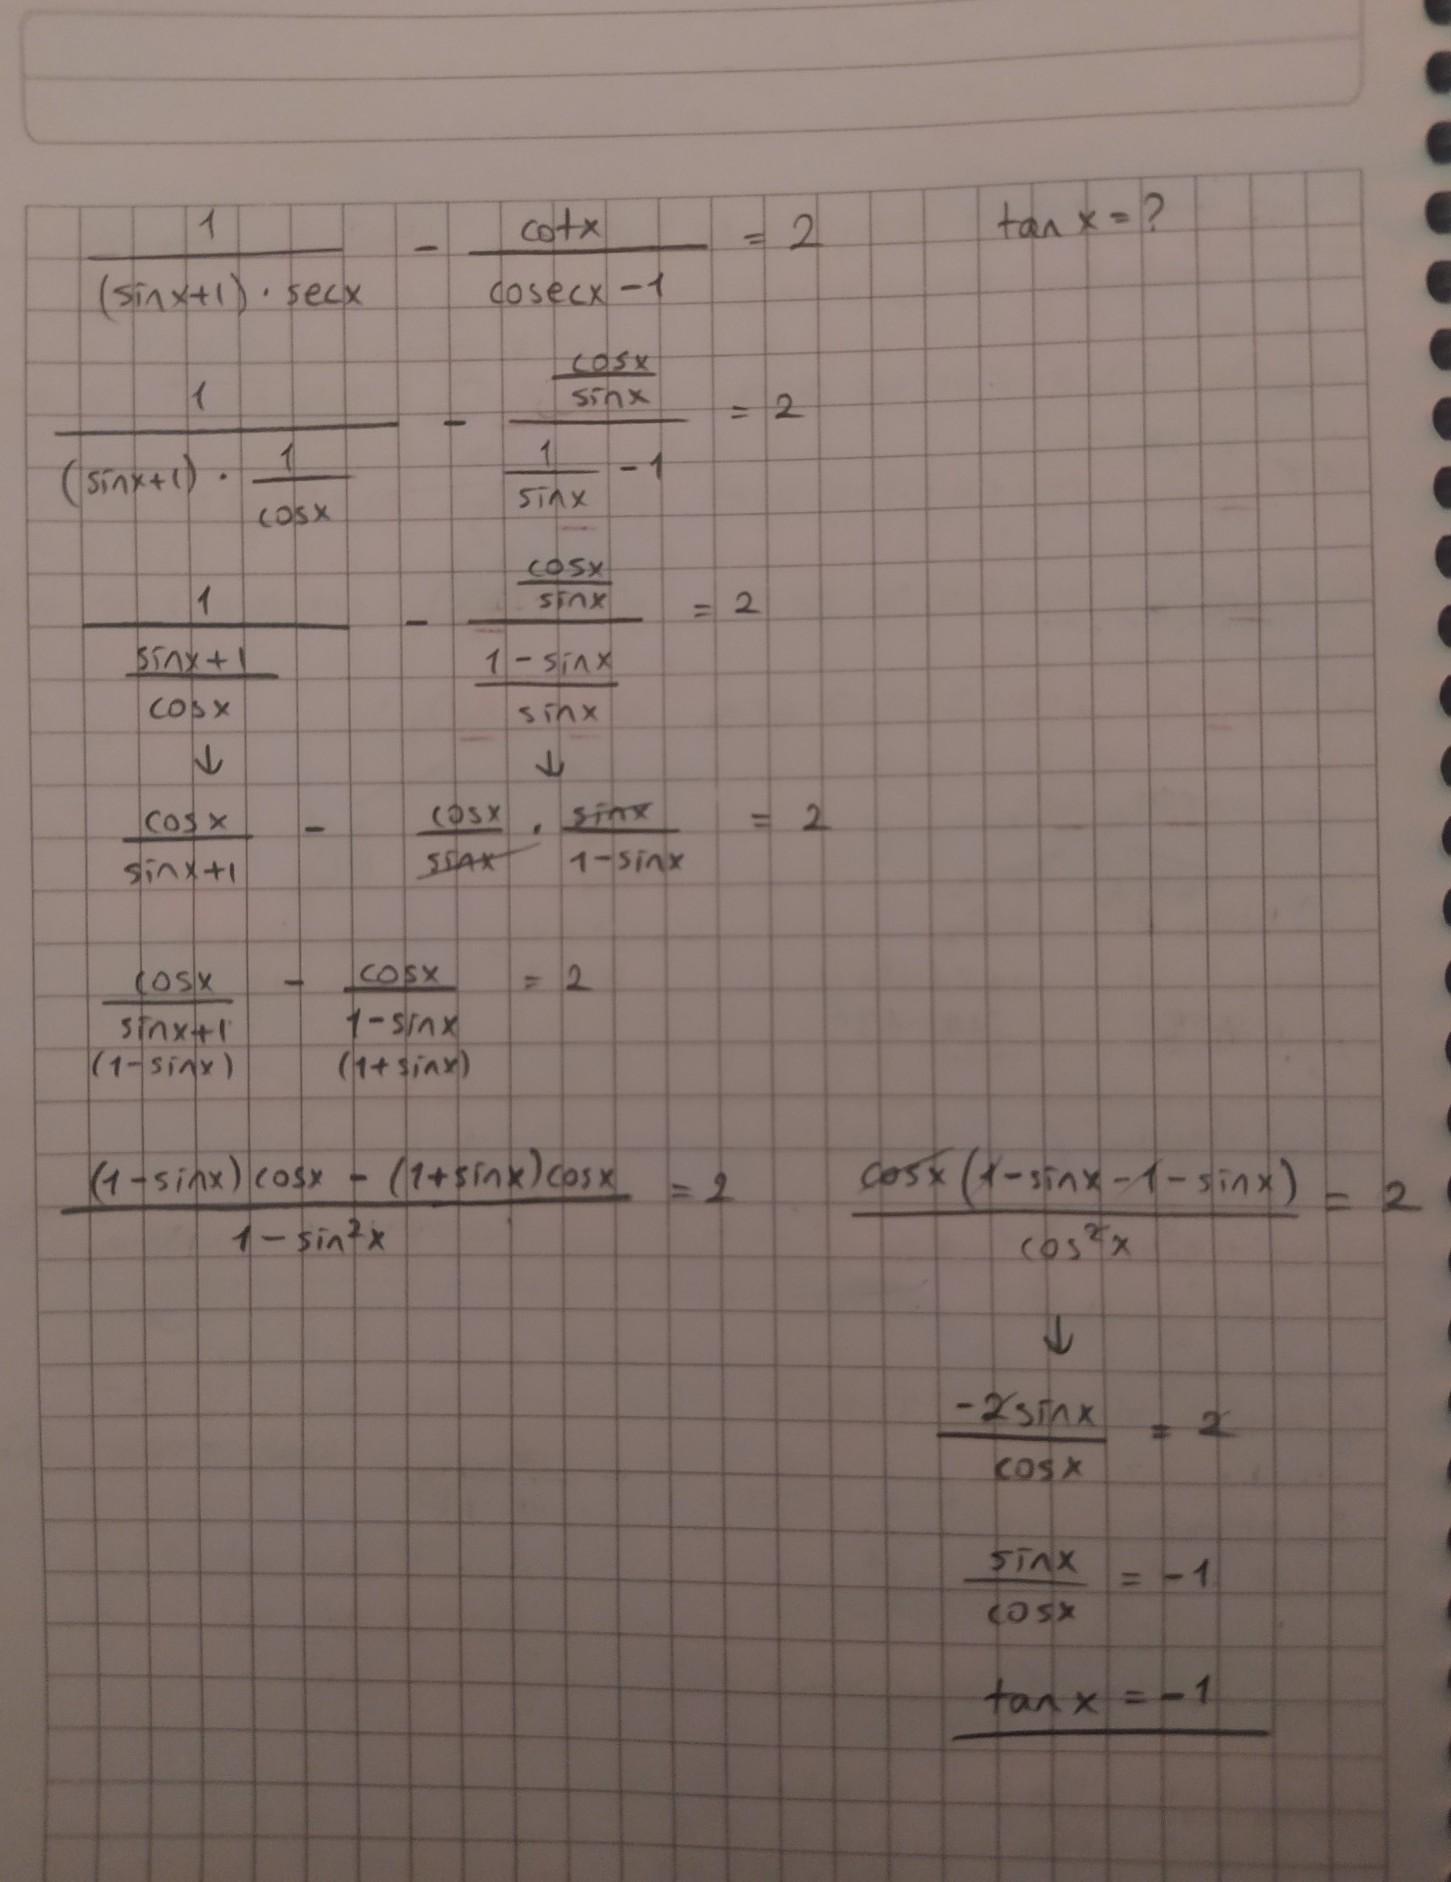 1/((sinx+1) · secx) - cotx/(cosecx - 1) = 2    tan x = ?
1/((sinx+1) · 1/cosx) - (cosx/sinx)/(1/sinx - 1) = 2
1/((sinx+1)/cosx) - (cosx/sinx)/((1 - sinx)/sinx) = 2
↓ ↓
cosx/(sinx+1) - cosx/sinx · sinx/(1-sinx) = 2
cosx/(sinx+1) - cosx/(1-sinx) = 2
(1-sinx) (1+sinx)
((1-sinx)cosx - (1+sinx)cosx)/(1 - sin²x) = 2    cosx(1-sinx-1-sinx)/cos²x = 2
↓
-2sinx/cosx = 2
sinx/cosx = -1
tan x = -1